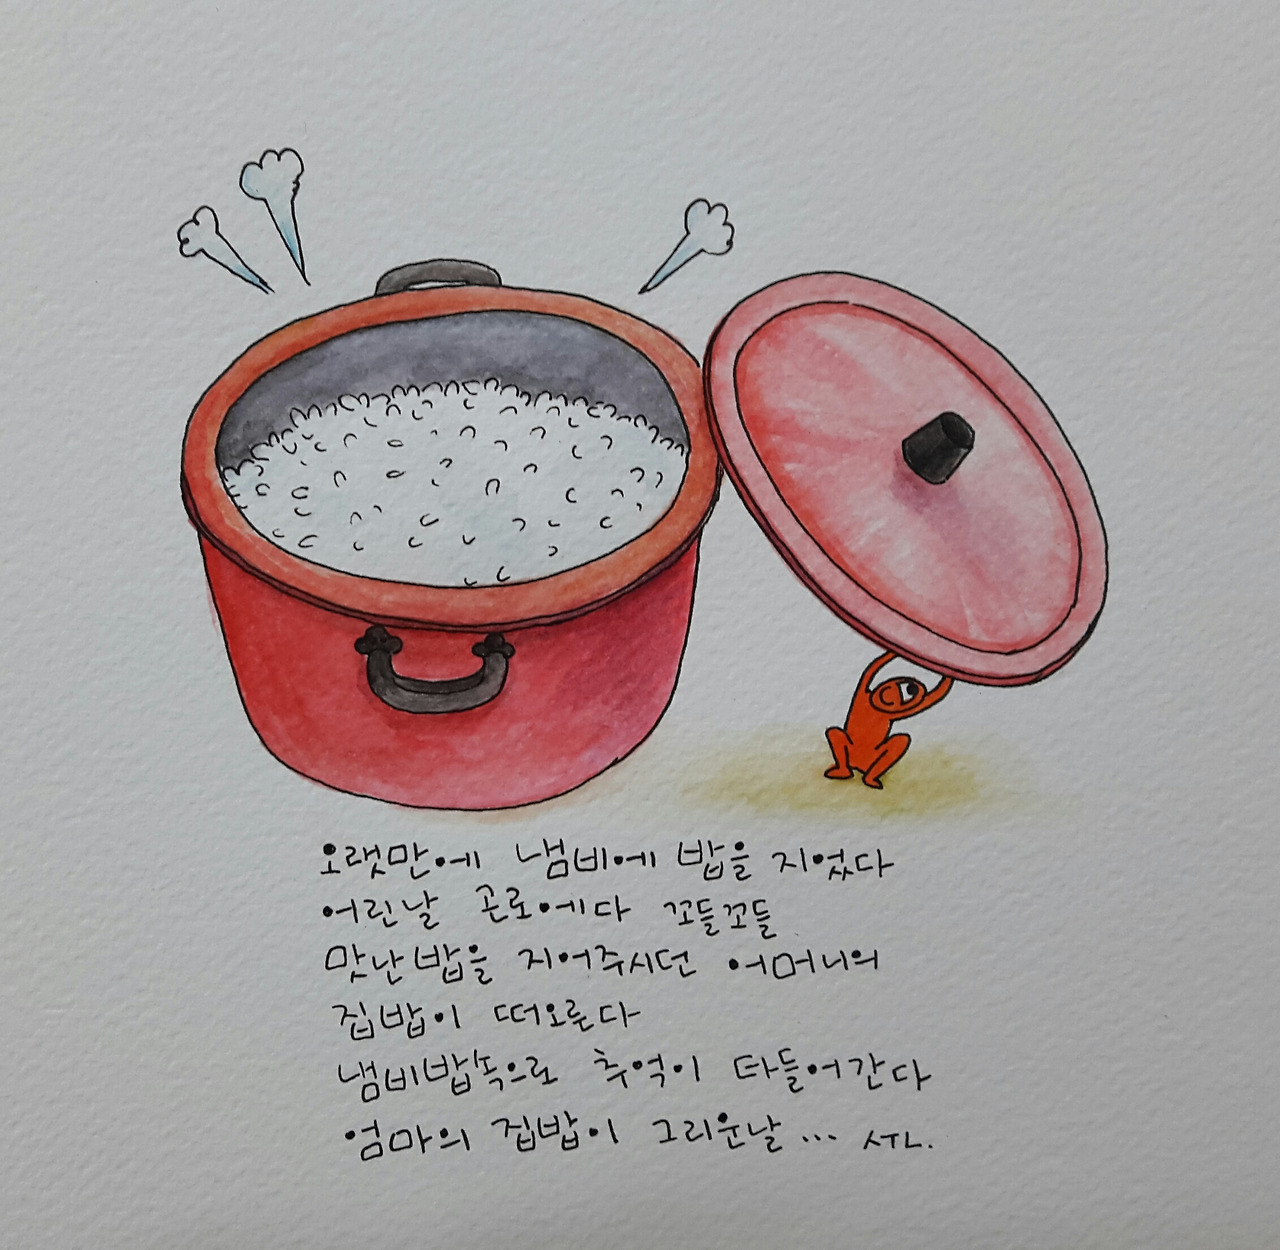 오랫만에 냄비에 밥을 지었다
어린날 곤로에다 꼬들꼬들
맛난밥을 지어주시던 어머니의
집밥이 떠오른다
냄비밥속으로 추억이 타들어간다
엄마의 집밥이 그리운날... STL.